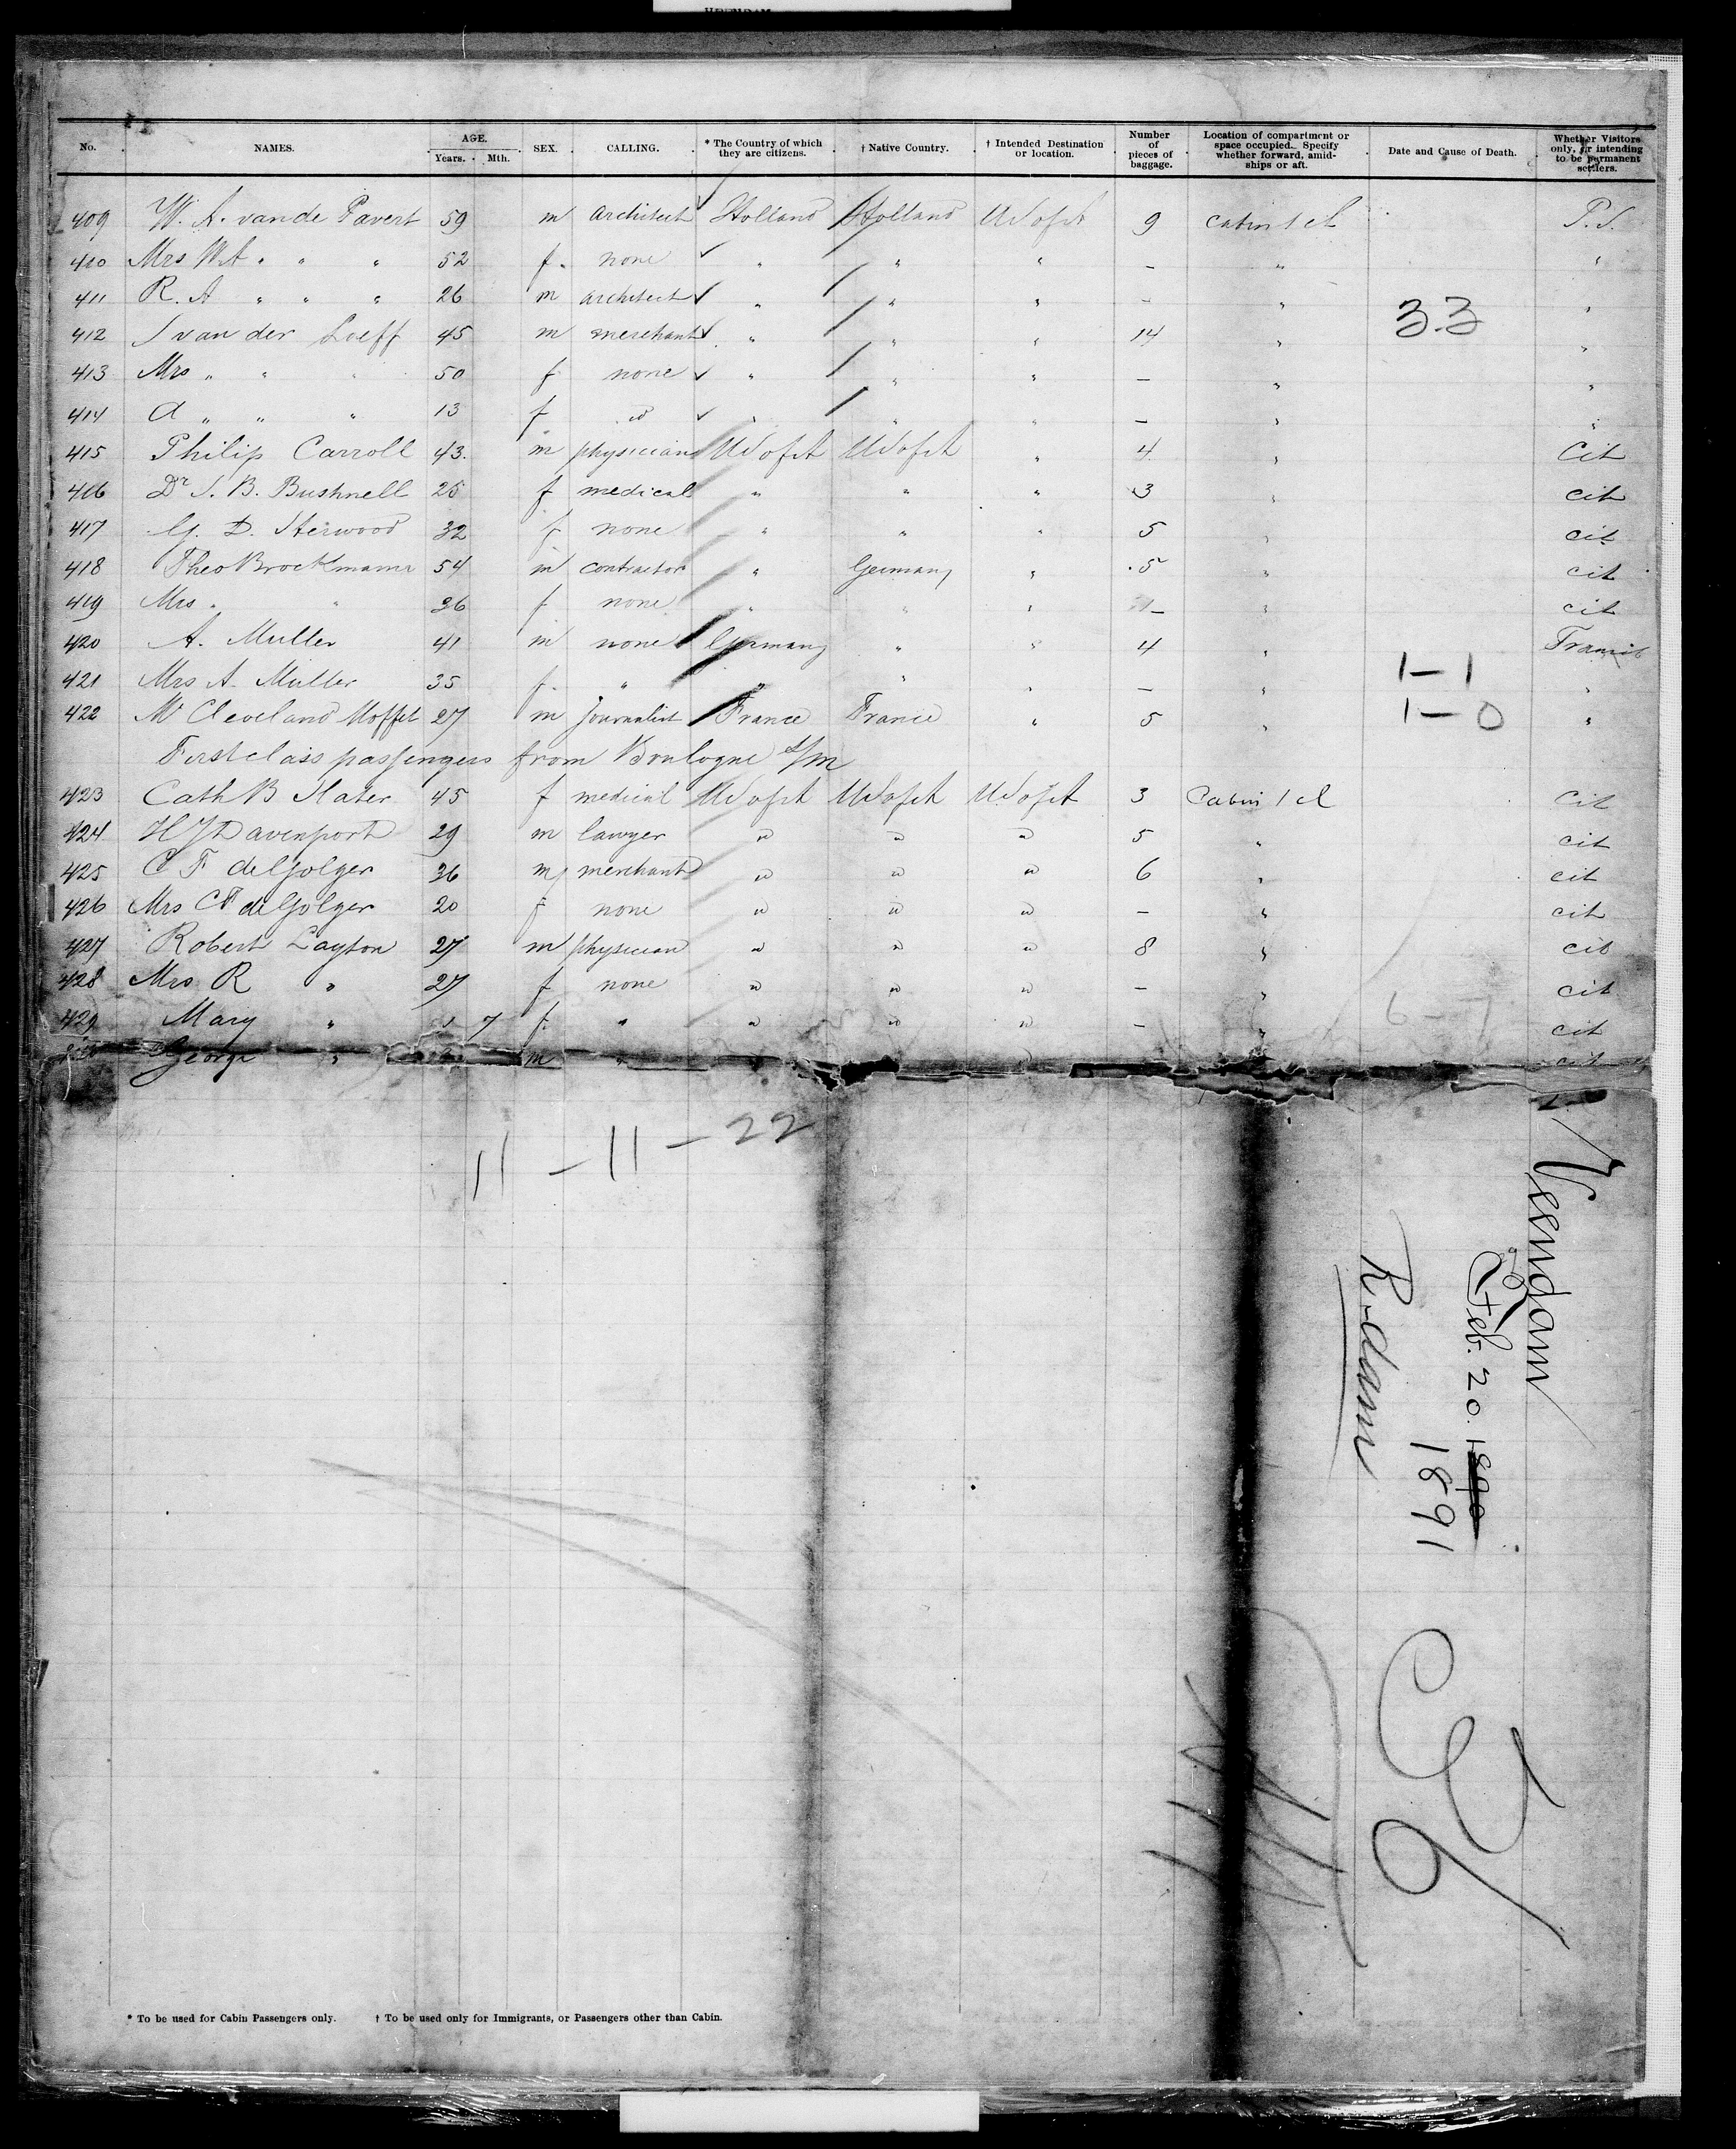 No. NAMES. AGE. Years. Mth. SEX. CALLING. * The Country of which they are citizens. † Native Country. † Intended Destination or location. Number of pieces of baggage. Location of compartment or space occupied. Specify whether forward, amidships or aft. Date and Cause of Death. Whether Visitors only, or intending to be permanent settlers.
409 W. A. van de Pavert 59 m architect Holland Holland US of A 9 cabin 1 cl P.S.
410 Mrs W A " " " 52 f. none " " " – " "
411 R. A " " " 26 m architect " " " – " "
33
412 J van der Loeff 45 m merchant " " " 14 " "
413 Mrs " " " 50 f none " " " – " "
414 A " " " 13 f id " " " – " "
415 Philip Carroll 43. m physician US of A US of A " 4 " Cit
416 Dr S. B. Bushnell 25 f medical " " " 3 " cit
417 G. D. Sherwood 32 f none " " " 5 " cit
418 Theo Brockmann 54 m contractor " Germany " 5 " cit
419 Mrs " " 36 f none " " " – " cit
420 A. Muller 41 m none Germany " " 4 " Transit
1–1
421 Mrs A. Muller 35 f. " " " " – " "
1–0
422 Mr Cleveland Moffet 27 m journalist France France " 5 " "
First class passengers from Boulogne s/m
423 Cath B Slater 45 f medical US of A US of A US of A 3 Cabin 1 cl cit
424 H J Davenport 29 m lawyer " " " 5 " cit
425 C F deGolyer 36 m merchant " " " 6 " cit
426 Mrs CF deGolyer 20 f none " " " – " cit
427 Robert Layton 27 m physician " " " 8 " cit
428 Mrs R " 27 f none " " " – " cit
6–
429 Mary " 7 f. " " " " – " cit
George " m " cit
11–11–22
Veendam
Feb. 20. 1890
1891
R-dam
* To be used for Cabin Passengers only. † To be used only for Immigrants, or Passengers other than Cabin.